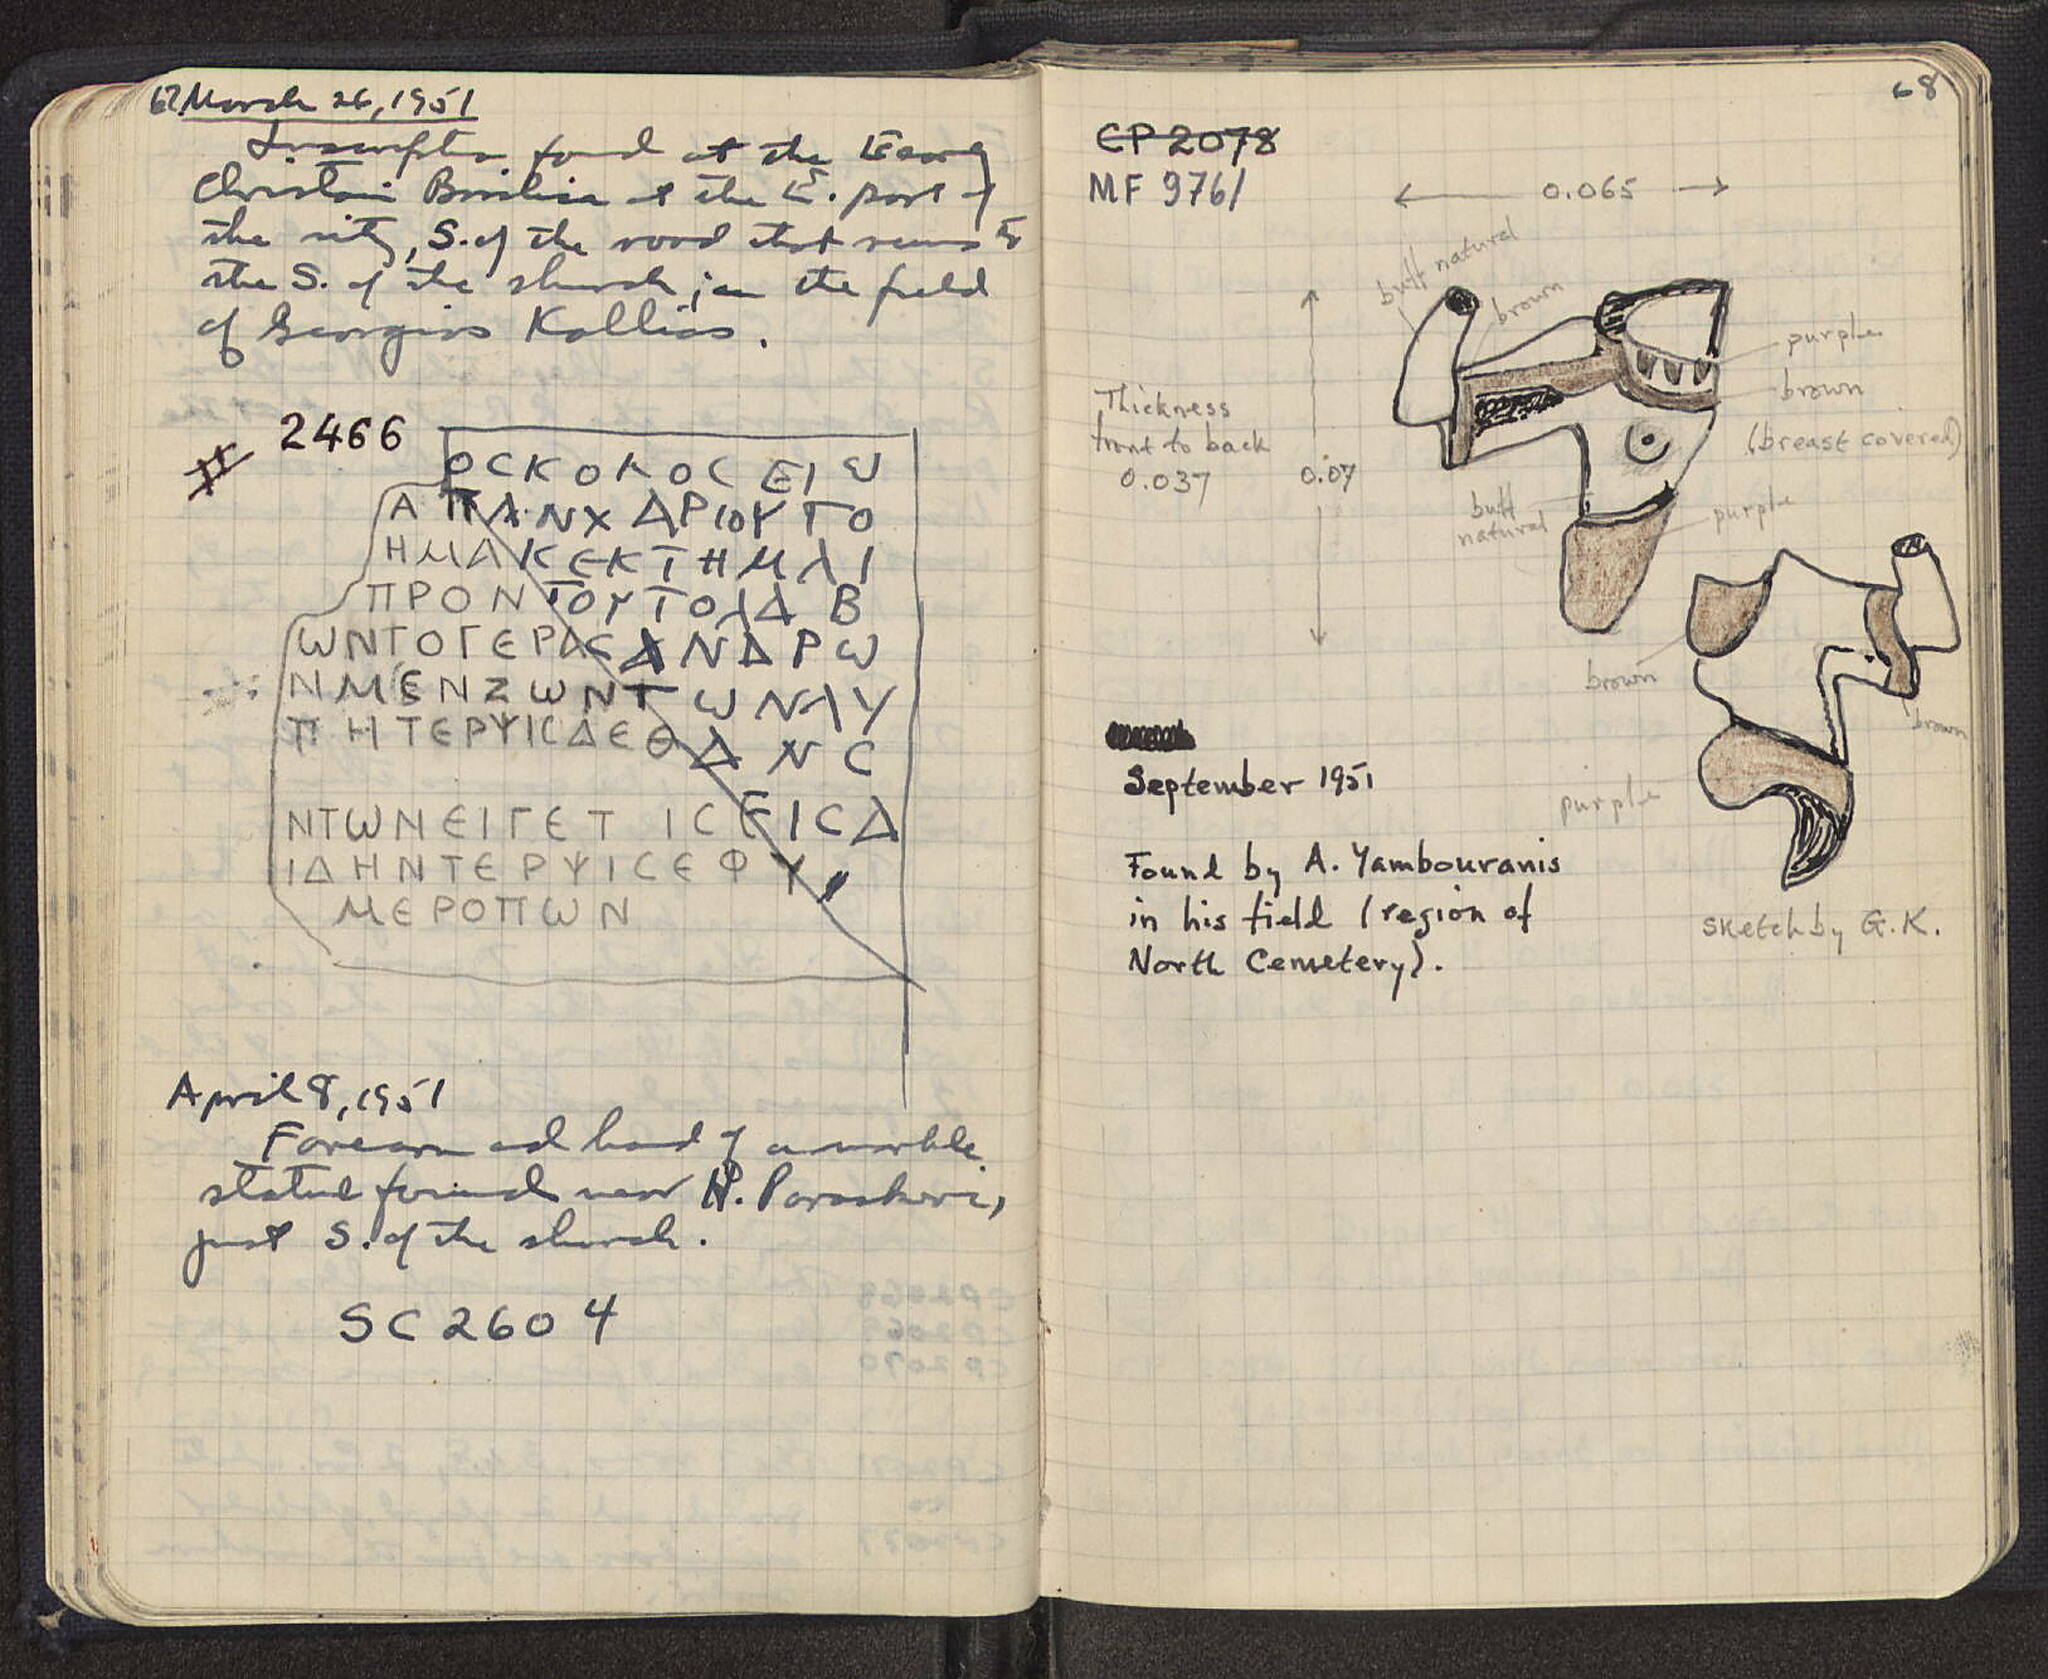 67. March 26, 1951
Inscription found at the Early
Christian Basilica at the E. part of
the city, S. of the road that runs to
the S. of the church; in the field
of Georgios Kallias.
# 2466
ΟϹΚΟΛΟϹ ΕΙω
Α ΠΛΝΧ ΔΡΙΟΥΤΟ
ΗΜΑΚΕΚΤΗΜΑΙ
ΠΡΟΝΤΟΥΤΟΛΔ Β
ωΝΤΟΓΕΡΑϹΑΝΔΡω
ΝΜΕΝΖωΝΤωΝΛΥ
ΠΗΤΕΡΨΙϹΔΕΘΑΝϹ
ΝΤωΝΕΙΓΕΤ ΙϹΕΙϹΔ
ΙΔΗΝΤΕΡΨΙϹΕΦΥ
ΜΕΡΟΠωΝ
April 8, 1951
Forearm and hand of a marble
statue found near H. Paraskevi,
just S. of the church.
SC 2604
68
CP 2078
MF 9761
0.065
butt natural
brown
purple
brown
(breast covered)
Thickness
front to back
0.037
0.07
butt
natural
purple
brown
brown
purple
September 1951
Found by A. Yambouranis
in his field (region of
North Cemetery).
sketch by G.K.